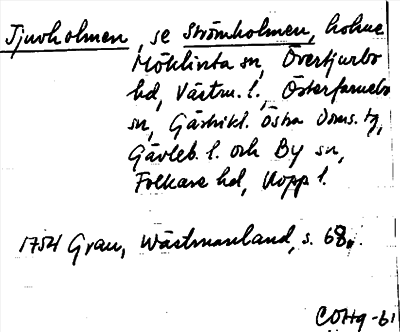 Tjuvholmen, se Strömholmen, holme
Möklinta sn, Övertjurbo
hd, Västm. l., Österfärnebo
sn, Gästrikl. Östra doms. tg,
Gävleb. l. och By sn,
Folkare hd, Kopp l.
1754 Grau, Wästmanland, s. 68.
COHg -61